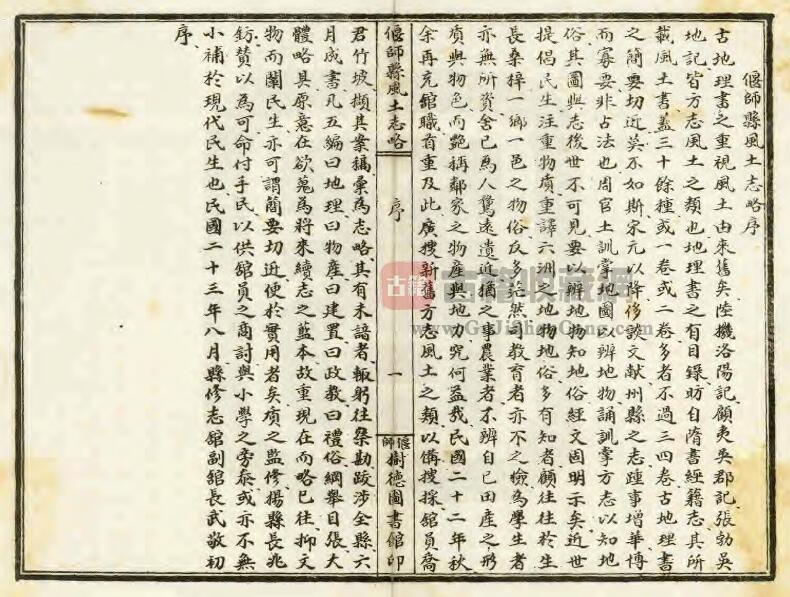 偃師縣風土志略序
古地理書之重視風土由來舊矣陸機洛陽記顧夷吳郡記張勃吳
地記皆方志風土之類也地理書之有目錄昉自隋書經籍志其所
載風土書蓋三十餘種或一卷或二卷多者不過三四卷古地理書
之簡要切近莫不如斯宋元以降侈談文献州縣之志踵事增華博
而寡要非古法也周官土訓掌地圖以辨地物誦訓掌方志以知地
俗其圖與志後世不可見要以辨地物知地俗經文固明示矣近世
提倡民生注重物質重譯六洲之地物地俗多有知者顧往往於生
長桑梓一鄉一邑之物俗反多茫然司教育者亦不之檢為學生者
亦無所資舍己為人騖遠遺近猶之事農業者不辨自己田產之形
質與物色而艷稱鄰家之物產與地力究何益哉民國二十二年秋
余再充館職首重及此廣搜新舊方志風土之類以備搜採館員喬
偃師縣風土志略
序
一
偃師樹德圖書館印
君竹坡擷其案稿彙為志略其有未諳者輒躬往察勘跋涉全縣六
月成書凡五編曰地理曰物產曰建置曰政教曰禮俗綱舉目張大
體略具原意在欲蒐為將來續志之藍本故重現在而略已往抑文
物而闡民生亦可謂簡要切近便於實用者矣質之監修揚縣長兆
鈁贊以為可命付手民以供館員之商討與小學之旁參或亦不無
小補於現代民生也民國二十三年八月縣修志館副館長武敬初
序
古籍收藏網
www.GuJiShouCang.com